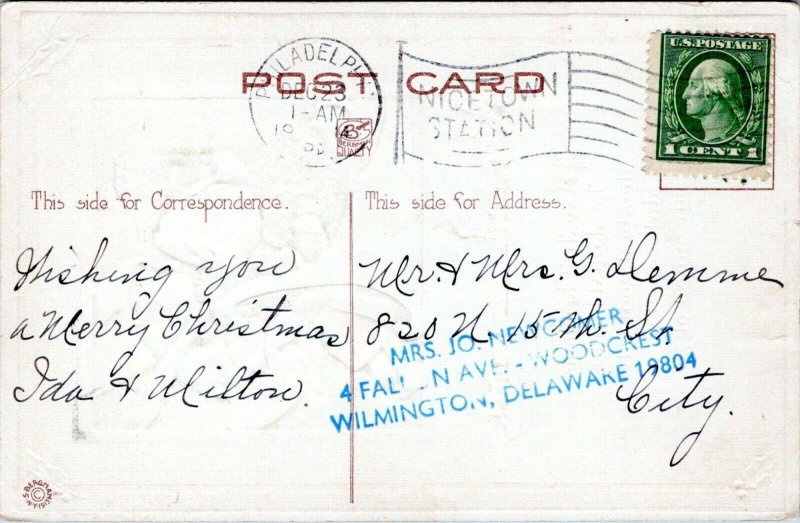 PHILADELPHI
DEC 23
1-AM
PA.
NICETOWN
STATION
POST CARD
U.S. POSTAGE
1 CENT 1
This side for Correspondence.
This side for Address.
Wishing you
a Merry Christmas
Ida & Milton.
Mr. & Mrs. G. Demme
820 N. 15 th. St.
City.
MRS. JO. NEWCOMER
4 AVE. - WOODCREST
WILMINGTON, DELAWARE 19804
S. BERGMAN N.Y.